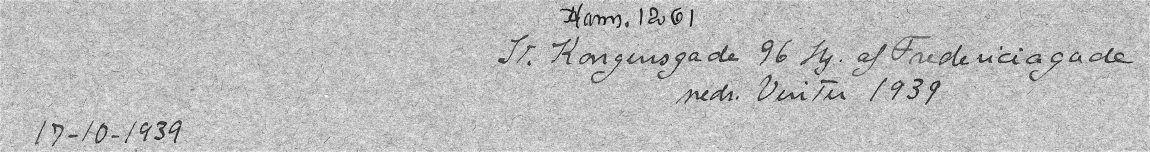 Ham. 1261
St. Kongensgade 96 Hj. af Fredericiagade
nedr. Vinter 1939
17-10-1939